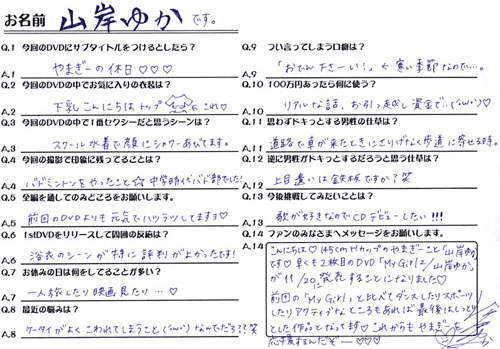 お名前 山岸ゆか です。
Q.1 今回のDVDにサブタイトルをつけるとしたら？
A.1 やまぎーの休日♡♡♡
Q.2 今回のDVDの中でお気に入りの衣装は？
A.2 下乳こんにちはトップ ←これ♡
Q.3 今回のDVDの中で1番セクシーだと思うシーンは？
A.3 スクール水着で顔にシャワーあびてます。
Q.4 今回の撮影で印象に残ってることは？
A.4 バドミントンをやったこと☆中学時代バド部でした!
Q.5 全編を通してのみどころをお願いします。
A.5 前回のDVDよりも元気でハツラツしてます♡
Q.6 1stDVDをリリースして周囲の反応は？
A.6 浴衣のシーンが特に評判が上がったです!
Q.7 お休みの日は何をしてることが多い？
A.7 一人旅したり映画見たり…♡
Q.8 最近の悩みは？
A.8 ケータイがよくこわれてしまうこと(´;ω;`)なんでだろ??笑
Q.9 つい言ってしまう口癖は？
A.9 「おでん下さーい!」←寒い季節なので…。
Q.10 100万円あったら何に使う？
A.10 リアルな話、お引っ越し資金で…(´;ω;`)
Q.11 思わずドキっとする男性の仕草は？
A.11 道路で車が来たときにさりげなく歩道に寄せる時。
Q.12 逆に男性がドキっとするだろうと思う仕草は？
A.12 上目遣いは鉄板ですか？笑
Q.13 今後挑戦してみたいことは？
A.13 歌が好きなのでCDデビューしたい!!!
Q.14 ファンのみなさまへメッセージをお願いします。
A.14 こんにちは♡145cm カップのやまぎーこと「山岸ゆか」
です♡早くも2枚目のDVD「My Girl2/山岸ゆか」
が11/20に発売することになりました♡
前回の「My Girl」と比べてダンスしたりスポーツ
したりアクティブなところもあれば最後はしっとり
とした作品となってます♡これからもやまぎーを
応援するんだぞー♡♡♡